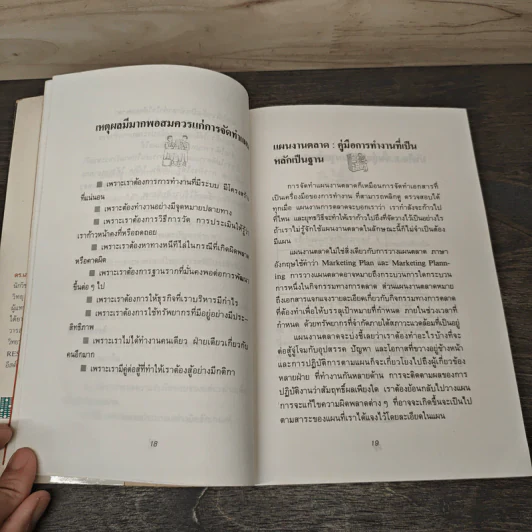 เหตุผลมีมากพอสมควรแก่การจัดทำแผน
เพราะต้องการการทำงานที่มีระบบ มีโครง
ที่แน่นอน
เพราะต้องทำงานอย่างมีจุดหมายปลายทาง
เพราะต้องการวิธีการวัด การประเมินได้รู้
เราก้าวหน้าคงที่หรือถดถอย
เพราะต้องหาทางหนีทีไล่ในกรณีที่เกิดผิดพลาด
หรือคาดผิด
เพราะต้องการฐานรากที่มั่นคงพอต่อการพัฒนา
ขึ้นต่อ ๆ ไป
เพราะต้องการให้ธุรกิจที่เราบริหารมีกำไร
เพราะต้องการใช้ทรัพยากรที่มีอยู่อย่างมีประ-
สิทธิภาพ
เพราะเราไม่ได้ทำงานคนเดียว ฝ่ายเดียวเกี่ยวกับ
คนอีกมาก
เพราะเรามีคู่ต่อสู้ที่ทำให้เราต้องสู้อย่างมีกติกา
18
แผนงานตลาด : คู่มือการทำงานที่เป็น
หลักเป็นฐาน
การจัดทำแผนงานตลาดก็เหมือนการจัดทำเอกสารที่
เป็นเครื่องมือของการทำงาน ที่สามารถพลิกดู ตรวจสอบได้
ทุกเมื่อ แผนงานการตลาดจะบอกเราว่า เรากำลังจะก้าวไป
ที่ไหน และยุทธวิธีจะทำให้เราก้าวไปถึงที่ซึ่งวางไว้เป็นอย่างไร
ถ้าเราไม่รู้จักใช้แผนงานตลาดในลักษณะนี้ก็ไม่จำเป็นต้อง
มีแผน
แผนงานตลาดไม่ใช่สิ่งเดียวกับการวางแผนตลาด ภาษา
อังกฤษใช้คำว่า Marketing Plan และ Marketing Plann-
ing การวางแผนตลาดอาจหมายถึงกระบวนการใดกระบวน
การหนึ่งในกิจกรรมทางการตลาด ส่วนแผนงานตลาดหมาย
ถึงเอกสารแจกแจงรายละเอียดเกี่ยวกับกิจกรรมทางการตลาด
ที่ต้องทำเพื่อให้บรรลุเป้าหมายที่กำหนด ภายในช่วงเวลาที่
กำหนด ด้วยทรัพยากรที่จำกัดภายใต้สภาวะแวดล้อมที่เป็นอยู่
แผนงานตลาดจะบ่งชี้เลยว่าเราต้องทำอะไรบ้างที่จะ
ต่อสู้จู่โจมกับอุปสรรค ปัญหา และโอกาสที่ขวางอยู่ข้างหน้า
และการปฏิบัติการตามแผนก็จะเกี่ยวโยงไปถึงผู้เกี่ยวข้อง
หลายฝ่าย ที่ทำงานกันหลายด้าน การจะติดตามผลของการ
ปฏิบัติงานว่าสัมฤทธิ์ผลเพียงใด เราต้องย้อนกลับไปวางแผน
การจะแก้ไขความผิดพลาดต่าง ๆ ที่อาจจะเกิดขึ้นจะเป็นไป
ตามสาระของแผนที่เราได้แจงไว้โดยละเอียดในแผน
19